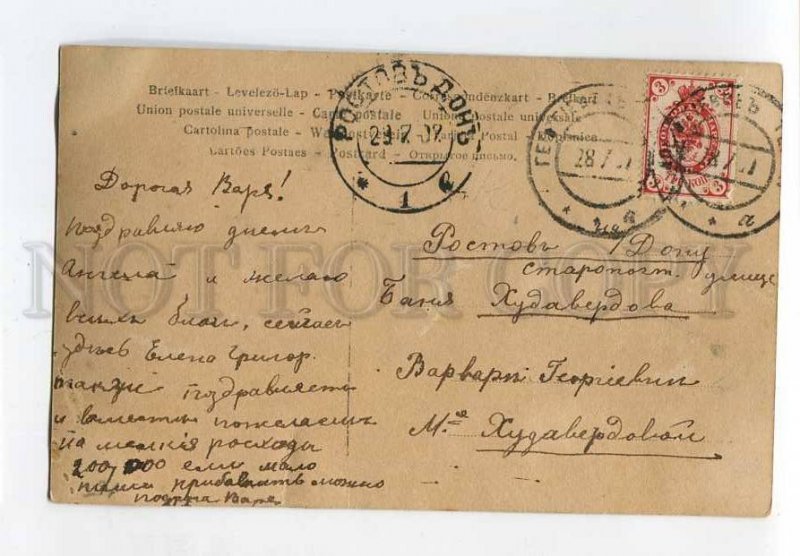 Briefkaart - Levelező-Lap - Postkarte - Correspondenzkart - Brefkort
Union postale universelle - Carte postale - Union postale universale
Cartolina postale - Postal - Dopisnica
Cartões Postaes - Postcard - Открытое письмо.
РОСТОВЪ ДОНЪ
29.7.07
1
28.7.
3
3
NOT FOR COPY
Дорогая Варя!
Поздравляю днемъ
Ангела и желаю
всихъ благъ, сейчас
здѣсь Елена Григор.
также поздравляетъ
и вместѣ пожелаемъ
на мелкія росходы
200,000 если мало
прибавить можно
Варя
Ростовъ / Дону
старопочт. улице
Баня Худавердова
Варвары Георгіевны
М-me Худавердовой